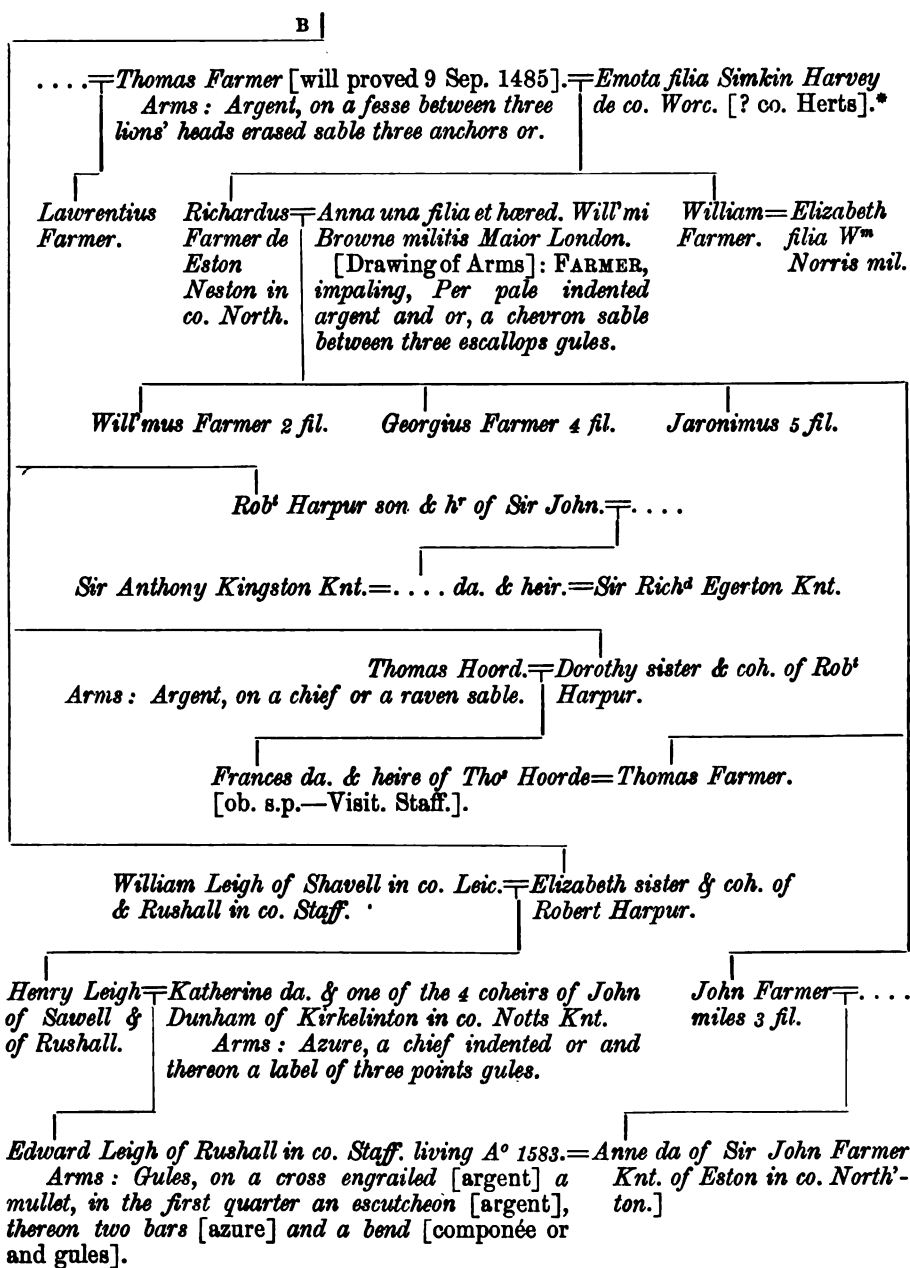 B
. . . . = Thomas Farmer [will proved 9 Sep. 1485]. = Emota filia Simkin Harvey
Arms : Argent, on a fesse between three
lions' heads erased sable three anchors or.
de co. Worc. [? co. Herts].*
Lawrentius
Farmer.
Richardus =
Farmer de
Eston
Neston in
co. North.
Anna una filia et hæred. Will'mi
Browne militis Maior London.
[Drawing of Arms] : FARMER,
impaling, Per pale indented
argent and or, a chevron sable
between three escallops gules.
William =
Farmer.
Elizabeth
filia Wm
Norris mil.
Will'mus Farmer 2 fil.
Georgius Farmer 4 fil.
Jaronimus 5 fil.
Robt Harpur son & hr of Sir John. = . . . .
Sir Anthony Kingston Knt. = . . . . da. & heir. = Sir Richd Egerton Knt.
Thomas Hoord. = Dorothy sister & coh. of Robt
Arms : Argent, on a chief or a raven sable.
Harpur.
Frances da. & heire of Thos Hoorde = Thomas Farmer.
[ob. s.p.—Visit. Staff.].
William Leigh of Shavell in co. Leic. = Elizabeth sister & coh. of
& Rushall in co. Staff.
Robert Harpur.
Henry Leigh =
of Sawell &
of Rushall.
Katherine da. & one of the 4 coheirs of John
Dunham of Kirkelinton in co. Notts Knt.
Arms : Azure, a chief indented or and
thereon a label of three points gules.
John Farmer = . . . .
miles 3 fil.
Edward Leigh of Rushall in co. Staff. living Ao 1583. =
Arms : Gules, on a cross engrailed [argent] a
mullet, in the first quarter an escutcheon [argent],
thereon two bars [azure] and a bend [componée or
and gules].
Anne da of Sir John Farmer
Knt. of Eston in co. North'-
ton.]